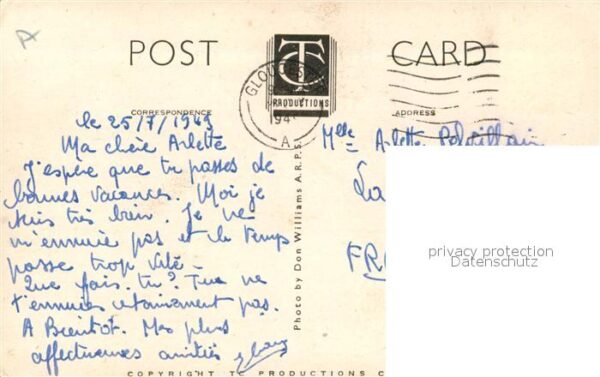 POST CARD
TC
PRODUCTIONS
GLOUCESTER
194
A
CORRESPONDENCE
ADDRESS
le 25/7/1949
Ma chère Arlette
J'espère que tu passes de
bonnes vacances. Moi je
suis très bien. Je ne
m'ennuie pas et le temps
passe trop vite -
Que fais-tu? Tu ne
t'ennuies certainement pas.
A Bientot. Mes plus
affectueuses amitiés
Photo by Don Williams A.R.P.S.
Mlle Arlette
La
FR
privacy protection
Datenschutz
COPYRIGHT TC PRODUCTIONS